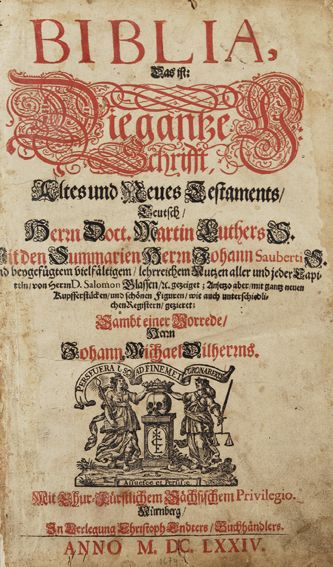 BIBLIA,
Das ist:
Die gantze H.
Schrifft,
Altes und Neues Testaments/
Teutsch/
Herrn Doct. Martin Luthers S.
it den Summarien Herrn Johann Sauberti S.
nd beygefügtem vielfältigem/ lehrreichem Nutzen aller und jeder Capi-
teln/ von Herrn D. Salomon Glassen/ ꝛc. gezeiget; Anjetzo aber/ mit gantz neuen
Kupfferstücken/ und schönen Figuren/ wie auch unterschiedli-
chen Registern/ gezieret:
Sambt einer Vorrede/
Herrn
Johann Michael Dilherrns.
PERSEVERA
AD FINEM ET
CORONABERIS
Mit Chur-Fürstlichem Sächsischem Privilegio.
Nürnberg/
In Verlegung Christoph Endters/ Buchhändlers.
ANNO M. DC. LXXIV.
1674